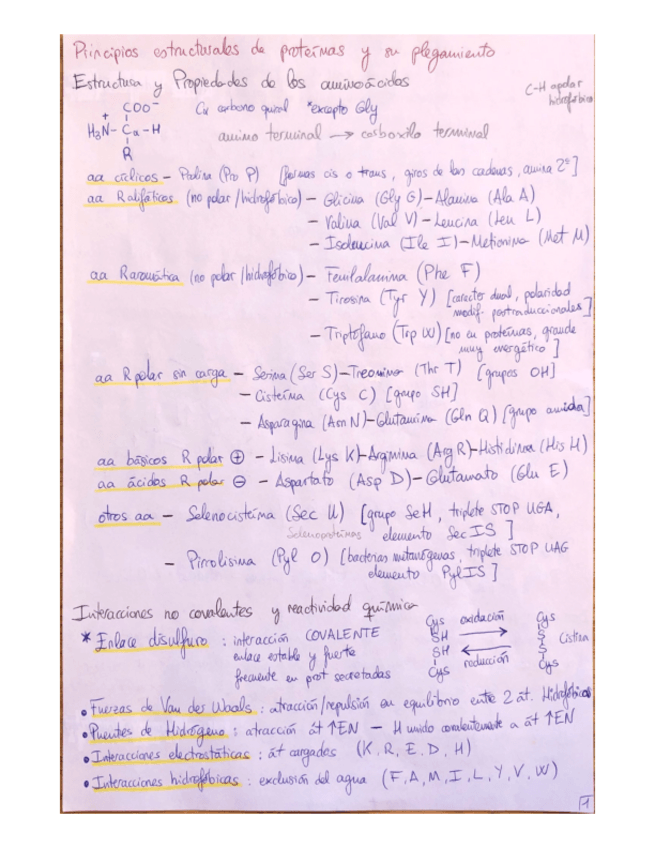 Principios estructurales de proteínas y su plegamiento
Estructura y Propiedades de los aminoácidos
C-H apolar
hidrofóbico
COO⁻
H₃N⁺- Cα -H
R
Cα carbono quiral *excepto Gly
amino terminal → carboxilo terminal
aa cíclicos - Prolina (Pro P) [formas cis o trans, giros de las cadenas, amina 2ª]
aa Ralifáticos (no polar/hidrofóbico) - Glicina (Gly G) - Alanina (Ala A)
- Valina (Val V) - Leucina (Leu L)
- Isoleucina (Ile I) - Metionina (Met M)
aa Raromática (no polar/hidrofóbico) - Fenilalanina (Phe F)
- Tirosina (Tyr Y) [caracter dual, polaridad
modif. postraduccionales]
- Triptófano (Trp W) [no en proteínas, grande
muy energético]
aa R polar sin carga - Serina (Ser S) - Treonina (Thr T) [grupos OH]
- Cisteína (Cys C) [grupo SH]
- Asparagina (Asn N) - Glutamina (Gln Q) [grupo amida]
aa básicos R polar ⊕ - Lisina (Lys K) - Arginina (Arg R) - Histidina (His H)
aa ácidos R polar ⊖ - Aspartato (Asp D) - Glutamato (Glu E)
otros aa - Selenocisteína (Sec U) [grupo SeH, triplete STOP UGA,
Selenoproteínas elemento SecIS]
- Pirrolisina (Pyl O) [bacterias metanógenas, triplete STOP UAG
elemento PylIS]
Interacciones no covalentes y reactividad química
* Enlace disulfuro : interacción COVALENTE
enlace estable y fuerte
frecuente en prot secretadas
Cys
SH
SH
Cys
oxidación
reducción
Cys
S
S
Cys
Cistina
• Fuerzas de Van der Waals : atracción/repulsión en equilibrio entre 2 át. Hidrofóbicos
• Puentes de Hidrógeno : atracción át ↑EN - H unido covalentemente a át ↑EN
• Interacciones electrostáticas : át cargados (K, R, E, D, H)
• Interacciones hidrofóbicas : exclusión del agua (F, A, M, I, L, Y, V, W)
1